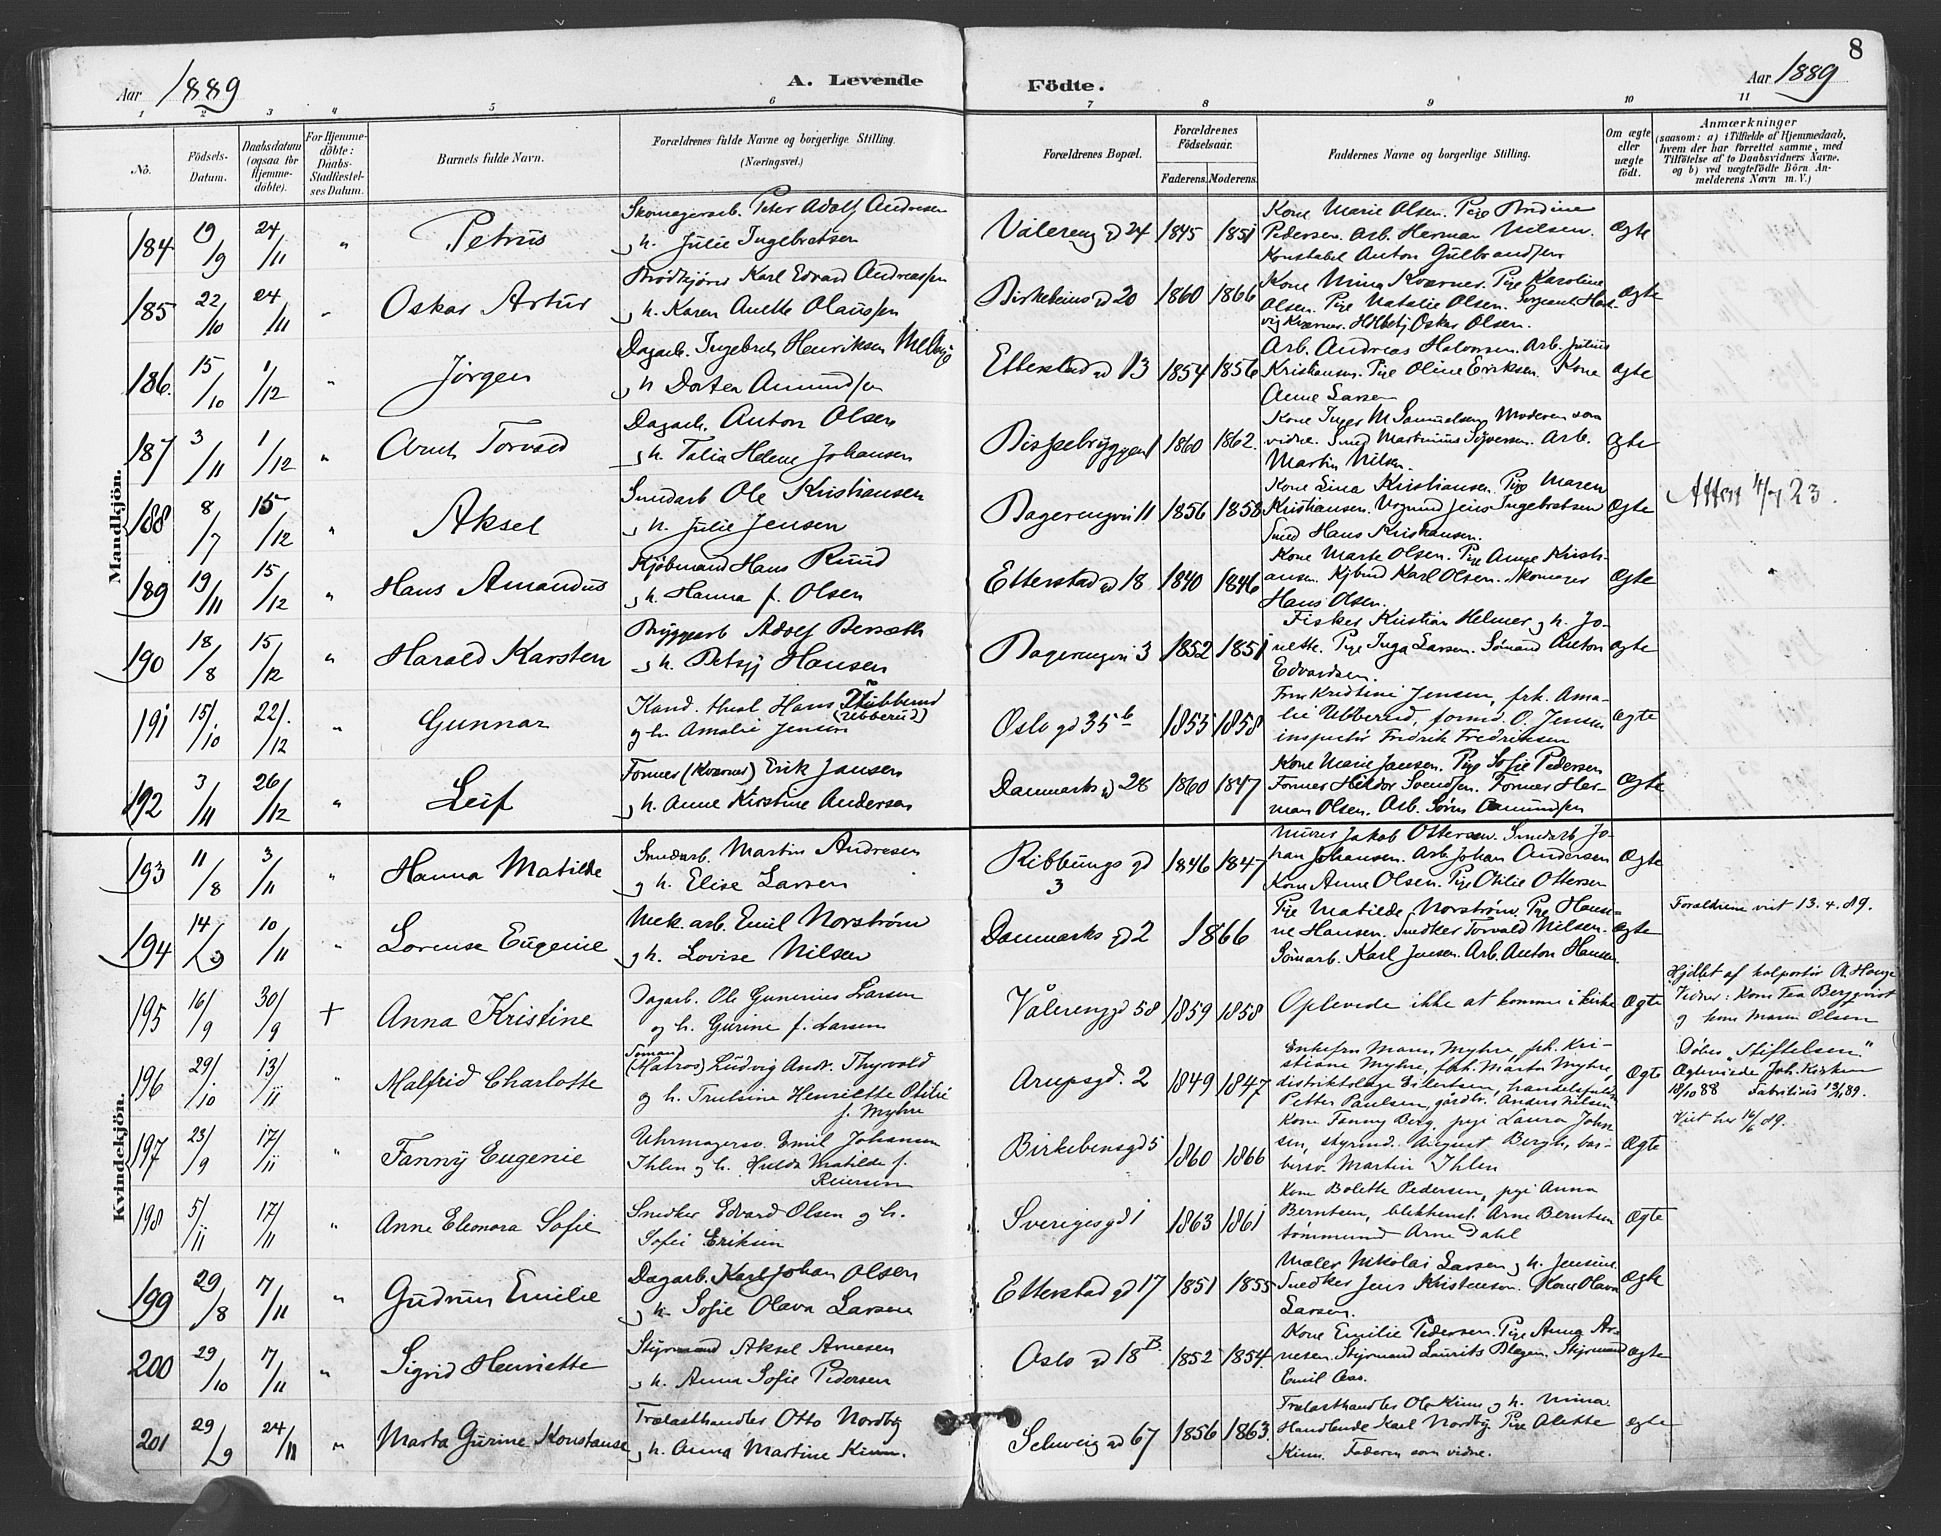 8
Aar 1889
A. Levende Födte.
Aar 1889
1 2 3 4 5 6 7 8 9 10 11
No.
Födsels-Datum.
Daabsdatum (ogsaa for Hjemme-döbte).
For Hjemme-döbte: Daabs-Stadfæstel-ses Datum.
Barnets fulde Navn.
Forældrenes fulde Navne og borgerlige Stilling. (Næringsvei.)
Forældrenes Bopæl.
Forældrenes Födselsaar.
Faderens. Moderens.
Faddernes Navne og borgerlige Stilling.
Om ægte eller uægte födt.
Anmærkninger
(saasom: a) i Tilfælde af Hjemmedaab, hvem der har forrettet samme, med Tilföielse af to Daabsvidners Navne. og b) ved uægtefödte Börn An-melderens Navn m. V.)
Mandkjön.
184 19/9 24/11 " Petrus
Skomagerarb. Peter Adolf Andresen
h. Julie Ingebretsen
Valereng gd 24 1845 1851
Kone Marie Olsen. Pige
Pedersen. Arb. Herman Nilsen.
Konstabel Anton Gulbrandsen
Ægte
185 22/10 24/11 " Oskar Artur
Brödkjörer Karl Edvard Andreassen
h. Karen Anette Olaussen
Birkebeins gd 20 1860 1866
Kone Mina Kværner. Pige Karoline
Olsen. Pige Natalie Olsen. Sergeant Hart-
vig Kværner. Oskar Olsen.
Ægte
186. 15/10 1/12 " Jörgen
Dagarb. Ingebret Henriksen
h. Dortea Amundsen
Etterstad gd 13 1854 1856
Arb. Andreas Halvorsen. Arb. Julius
Kristiansen. Pige Oline Eriksen. Kone
Anne Larsen
ægte
187 3/11 1/12 " Arnt Torvald
Dagarb. Anton Olsen
h. Talia Helene Johansen
Bispebryggen 1 1860 1862.
Kone Inger M. Samuelsen, Moderen som
vidne. Smed Martinius Syversen. Arb.
Martin Nilsen.
ægte
188 8/7 15/12 " Aksel
Smedarb Ole Kristiansen
h. Julie Jensen
Bagerengvei 11 1856 1858
Kone Lina Kristiansen. Pige Maren
Kristiansen. Vognmd Jens Ingebretsen
Smed Hans Kristiansen.
Ægte
Attest 4/7 23.
189 19/11 15/12 " Hans Amandus
Kjöbmand Hans Ruud
h. Hanna f. Olsen
Etterstad gd 18 1840 1846
Kone Marte Olsen. Pige Ange Kristi-
ansen. Kjbmd Karl Olsen. Skomager
Hans Olsen.
Ægte
190 18/8 15/12 " Harald Karsten
Bryggearb Adolf Bersæth
h. Betsy Hansen
Bagerengvei 3 1852 1851
Fisker Kristian Helmer og h. Jo-
nette. Pige Inga Larsen. Sömand Anton
Edvardsen.
ægte
191 15/10 22/12 " Gunnar
Kand. theol Hans Stubberud
(Ubberud)
og h. Amalie Jensen
Oslo gd 35 b 1855 1858
Fru Kristine Jensen, frk. Ama-
lie Ubberud, formd. O. Jensen
inspektör Fredrik Fredriksen
ægte
192 3/11 26/12 " Leif
Former (Kværner) Erik Jansen
h. Anne Kirstine Andersen
Danmarks gd 28 1860 1847
Kone Marie Jansen. Pige Sofie Pedersen
Former Heldor Svendsen. Former Her-
man Olsen. Arb. Sören Amundsen
Ægte
Kvindekjön.
193 11/8 3/11 " Hanna Matilde
Smedarb. Martin Andresen
og h. Elise Larsen
Ribbungs gd 3 1846 1847
Murer Jakob Ottersen. Smedarb Jo-
han Johansen. Arb. Johan Andersen
Kone Anne Olsen. Pige Otilie Ottersen
Ægte
194 14/9 10/11 " Lorense Eugenie
Mek. arb. Emil Norström
og h. Lovise Nilsen
Danmarks gd 2 1866
Pige Matilde Norström. Pige Hansi-
ne Hansen. Snedker Torvald Nilsen.
Sömarb. Karl Jensen. Arb. Anton Hansen.
ægte
Forældrene viet 13.4.89.
195 16/9 30/9 + Anna Kristine
Dagarb. Ole Gunerius Larsen
og h. Gurine f. Larsen
Vålerenggd 58 1859 1858
Oplevede ikke at komme i kirke
Ægte
Hjdbt af kolportör A. Hauge
Vidner: Kone Tea Bergqvist
og kone Maren Olsen
196 29/10 13/11 " Malfrid Charlotte
Sömand
(Matros) Ludvig Andr. Thyvold
og h. Trulsine Henriette Otilie
f. Myhre
Arupsgd. 2 1849 1847
Enkefru Maren Myhre, frk. Kri-
stiane Myhre, frk. Marta Myhre,
distriktslæge Eilertsen,
Petter Paulsen, gårdbr. Anders Nilsen
Ægte
Döbt "Stiftelsen"
Ægteviede Joh. Kirken
18/10 88 Fabritius 13/11 89.
197 23/9 17/11 " Fanny Eugenie
Uhrmagersv. Emil Johannes
Ihlen og h. Hulda Matilde f.
Reiersen
Birkebensgd 5 1860 1866
Kone Fanny Berg, pige Laura John-
sen, styrmd. August Bergh, bar-
bersv. Martin Ihlen
Ægte
Viet her 16/6 89.
198 5/11 17/11 " Anne Eleonora Sofie
Snedker Edvard Olsen og h.
Sofie Eriksen
Sverigesgd 1 1863 1861
Kone Bolette Pedersen, pige Anna
Berntsen, blikkensl. Arne Berntsen
tömmermd Arne Dahl
ægte
199 29/8 7/11 " Gudrun Emilie
Dagarb. Karl Johan Olsen
h. Sofie Olava Larsen
Etterstad gd 17 1851 1855
Maler Nikolai Larsen og h. Jensine.
Snedker Jens Kristensen. Kone Olava
Larsen.
Ægte
200 29/10 7/11 " Sigrid Henriette
Styrmand Aksel Arnesen
h. Anna Sofie Pedersen
Oslo gd 18 B 1852 1854.
Kone Emilie Pedersen. Pige Anna Ar-
nesen. Styrmand Laurits Blegen. Styrmand
Emil Aas.
ægte
201 29/9 24/11 " Marta Gurine Konstanse
Trælasthandler Otto Nordby
h. Anna Martine Kinn.
Schweig gd 67 1856 1863.
Trælasthandler Ole Kinn og h. Mina.
Handlende Karl Nordby. Pige Alette
Kinn. Faderen som vidne.
ægte